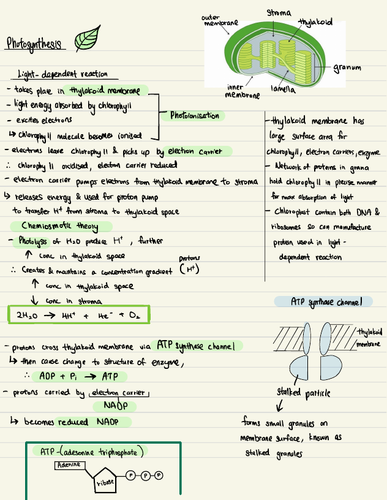 Photosynthesis
outer membrane
stroma
thylakoid
granum
inner membrane
lamella
Light-dependent reaction
- takes place in thylakoid membrane
- light energy absorbed by chlorophyll
- excites electrons
↳ chlorophyll molecule becomes ionised
Photoionisation
- electrons leave chlorophyll & picks up by electron carrier
∴ chlorophyll oxidised, electron carrier reduced
- electron carrier pumps electrons from thylakoid membrane to stroma
↳ releases energy & used for proton pump
to transfer H⁺ from stroma to thylakoid space
Chemiosmotic theory
- Photolysis of H₂O produce H⁺, further
↑ conc in thylakoid space
∴ Creates & maintains a concentration gradient (H⁺)
protons
↑ conc in thylakoid space
↓ conc in stroma
2H₂O → 4H⁺ + 4e⁻ + O₂
- protons cross thylakoid membrane via ATP synthase channel
↳ then cause change to structure of enzyme,
∴ ADP + Pi → ATP
- protons carried by electron carrier
NADP
↳ becomes reduced NADP
ATP - (adesonine triphosphate)
Adenine
ribose
P P P
- thylakoid membrane has
large surface area for
chlorophyll, electron carriers, enzyme
- Network of proteins in grana
hold chlorophyll in precise manner
for more absorption of light
- Chloroplast contain both DNA &
ribosomes so can manufacture
protein used in light-
dependent reaction
ATP synthase channel
thylakoid membrane
stalked particle
forms small granules on
membrane surface, known as
stalked granules